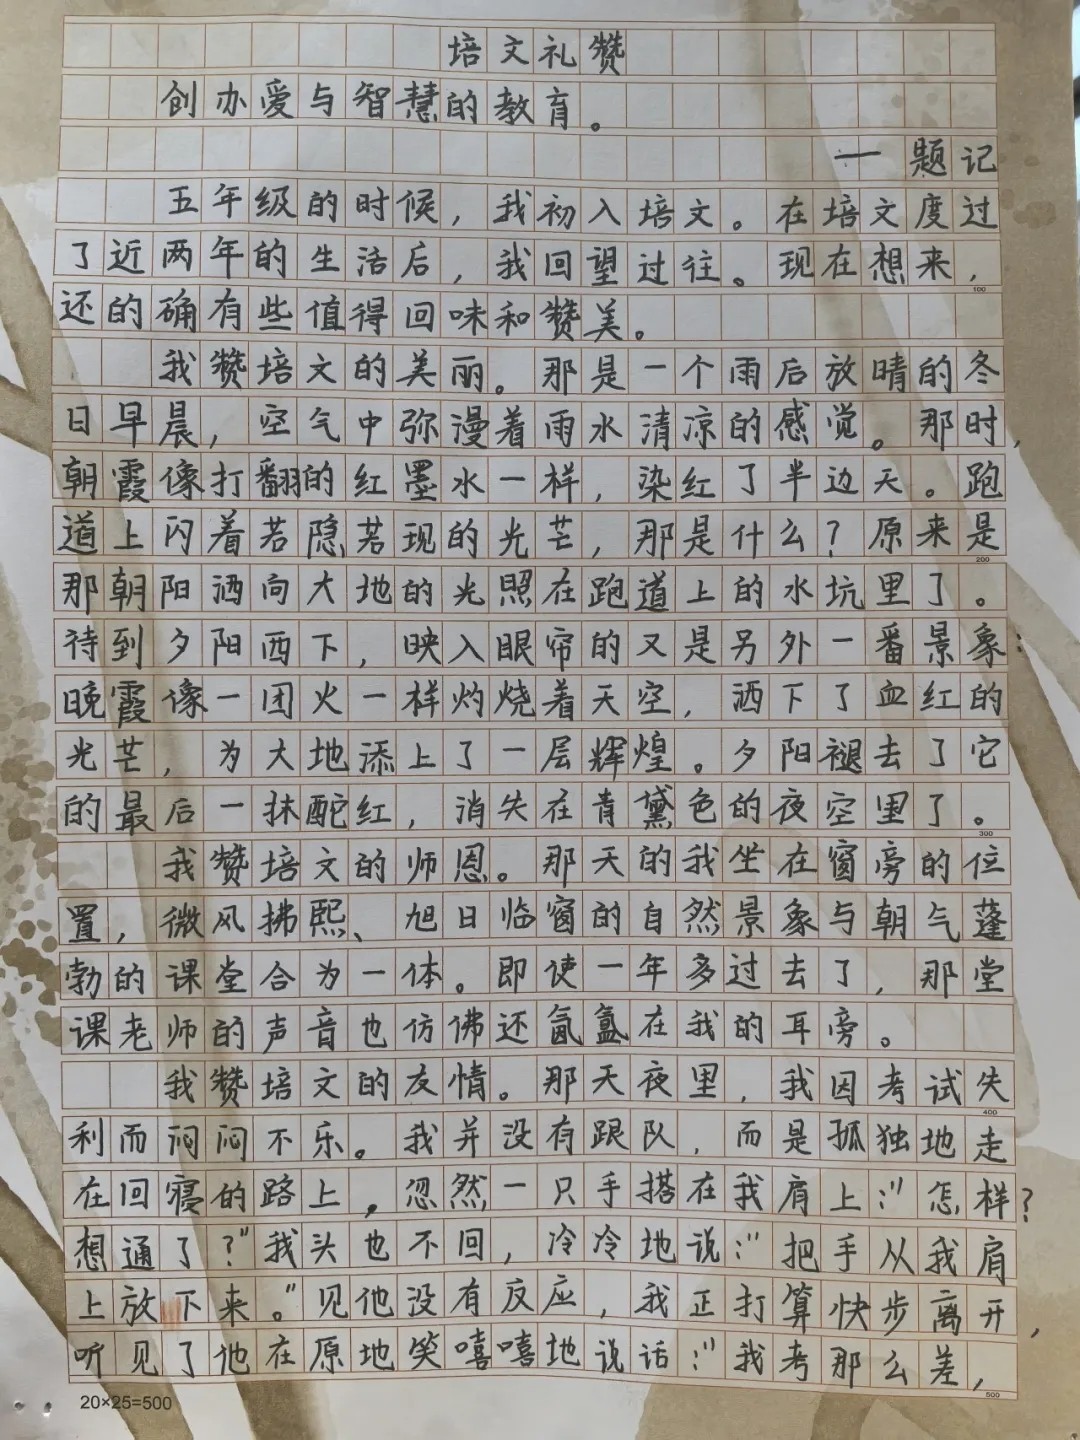 培文礼赞
创办爱与智慧的教育。
——题记
五年级的时候，我初入培文。在培文度过
了近两年的生活后，我回望过往。现在想来，
100
还的确有些值得回味和赞美。
我赞培文的美丽。那是一个雨后放晴的冬
日早晨，空气中弥漫着雨水清凉的感觉。那时，
朝霞像打翻的红墨水一样，染红了半边天。跑
道上闪着若隐若现的光芒，那是什么？原来是
200
那朝阳洒向大地的光照在跑道上的水坑里了。
待到夕阳西下，映入眼帘的又是另外一番景象：
晚霞像一团火一样灼烧着天空，洒下了血红的
光芒，为大地添上了一层辉煌。夕阳褪去了它
的最后一抹酡红，消失在青黛色的夜空里了。
300
我赞培文的师恩。那天的我坐在窗旁的位
置，微风拂熙、旭日临窗的自然景象与朝气蓬
勃的课堂合为一体。即使一年多过去了，那堂
课老师的声音也仿佛还氤氲在我的耳旁。
我赞培文的友情。那天夜里，我因考试失
400
利而闷闷不乐。我并没有跟队，而是孤独地走
在回寝的路上，忽然一只手搭在我肩上：“怎样？
想通了？”我头也不回，冷冷地说：“把手从我肩
上放下来。”见他没有反应，我正打算快步离开，
听见了他在原地笑嘻嘻地说话：“我考那么差，
500
20×25=500